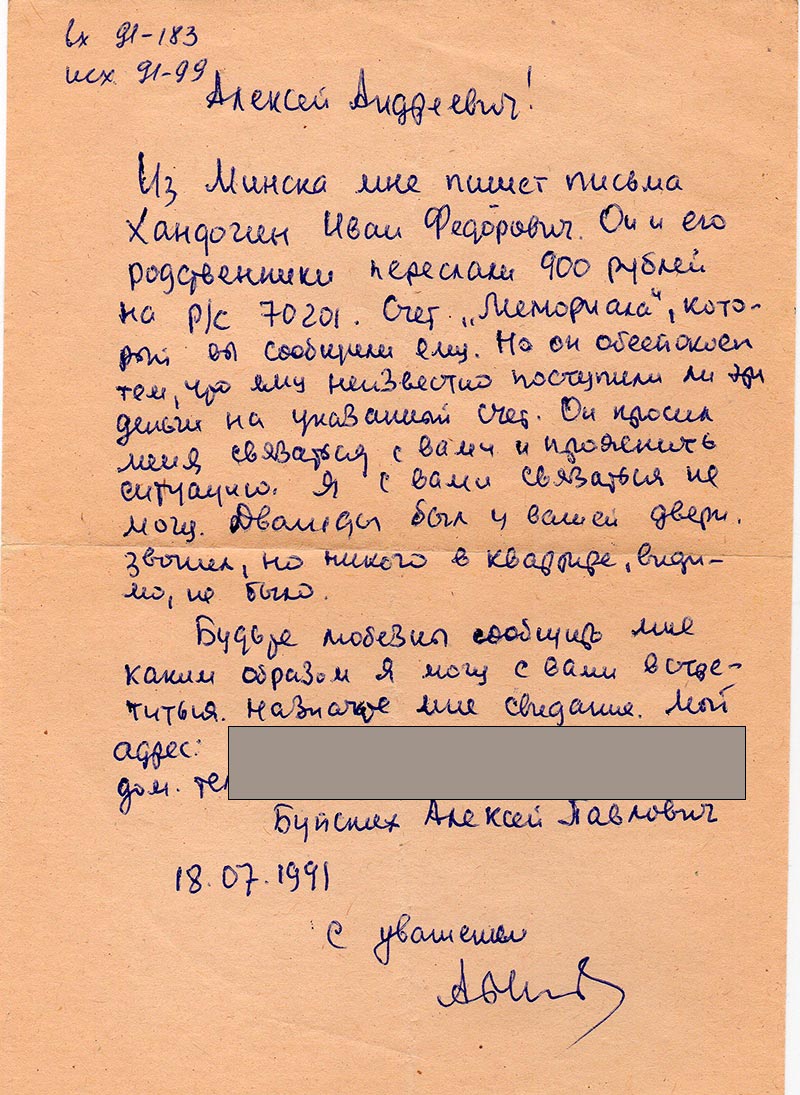 вх 91-183
исх 91-99
Алексей Андреевич!
Из Минска мне пишет письма
Хандогин Иван Федорович. Он и его
родственники переслали 900 рублей
на р/с 70201. Счет „Мемориала“, кото-
рый вы сообщили ему. Но он обеспокоен
тем, что ему неизвестно поступили ли эти
деньги на указанный счет. Он просил
меня связаться с вами и прояснить
ситуацию. Я с вами связаться не
могу. Дважды был у вашей двери.
звонил, но никого в квартире, види-
мо, не было.
Будьте любезны сообщить мне
каким образом я могу с вами встре-
титься. Назначьте мне свидание. Мой
адрес:
дом. тел
Буйских Алексей Павлович
18.07.1991
С уважением